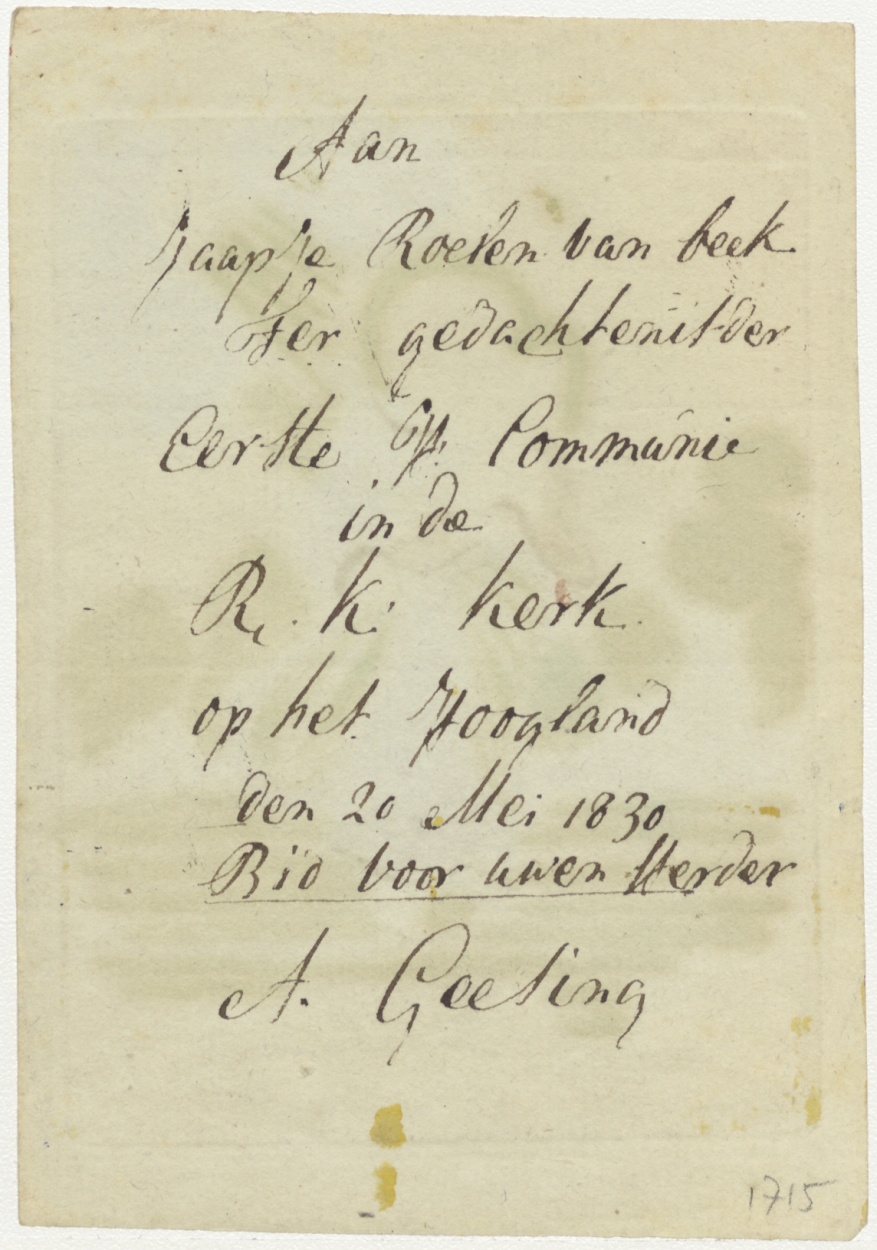 Aan
Jaapje Roelen van beek
Ter gedachtenis der
Eerste H. Communie
in de
R. K. Kerk
op het Hoogland
den 20 Mei 1830
Bid voor uwen Herder
A. Geeling
1715